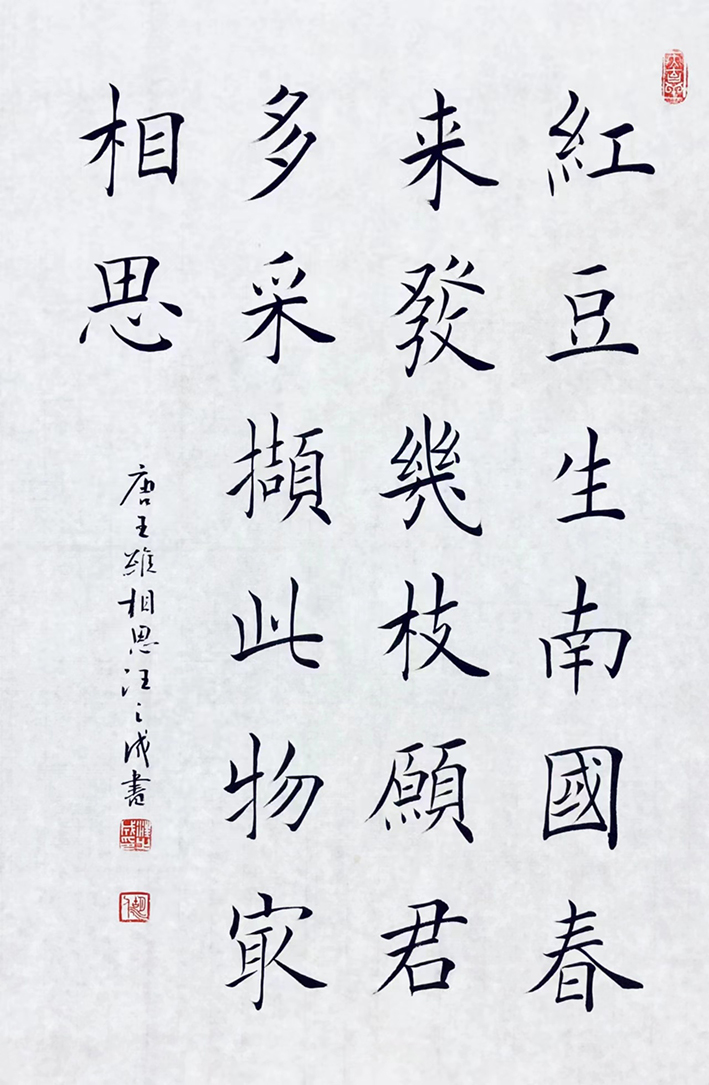 紅豆生南國春
来發幾枝願君
多采擷此物冣
相思
唐王維相思汪之成書